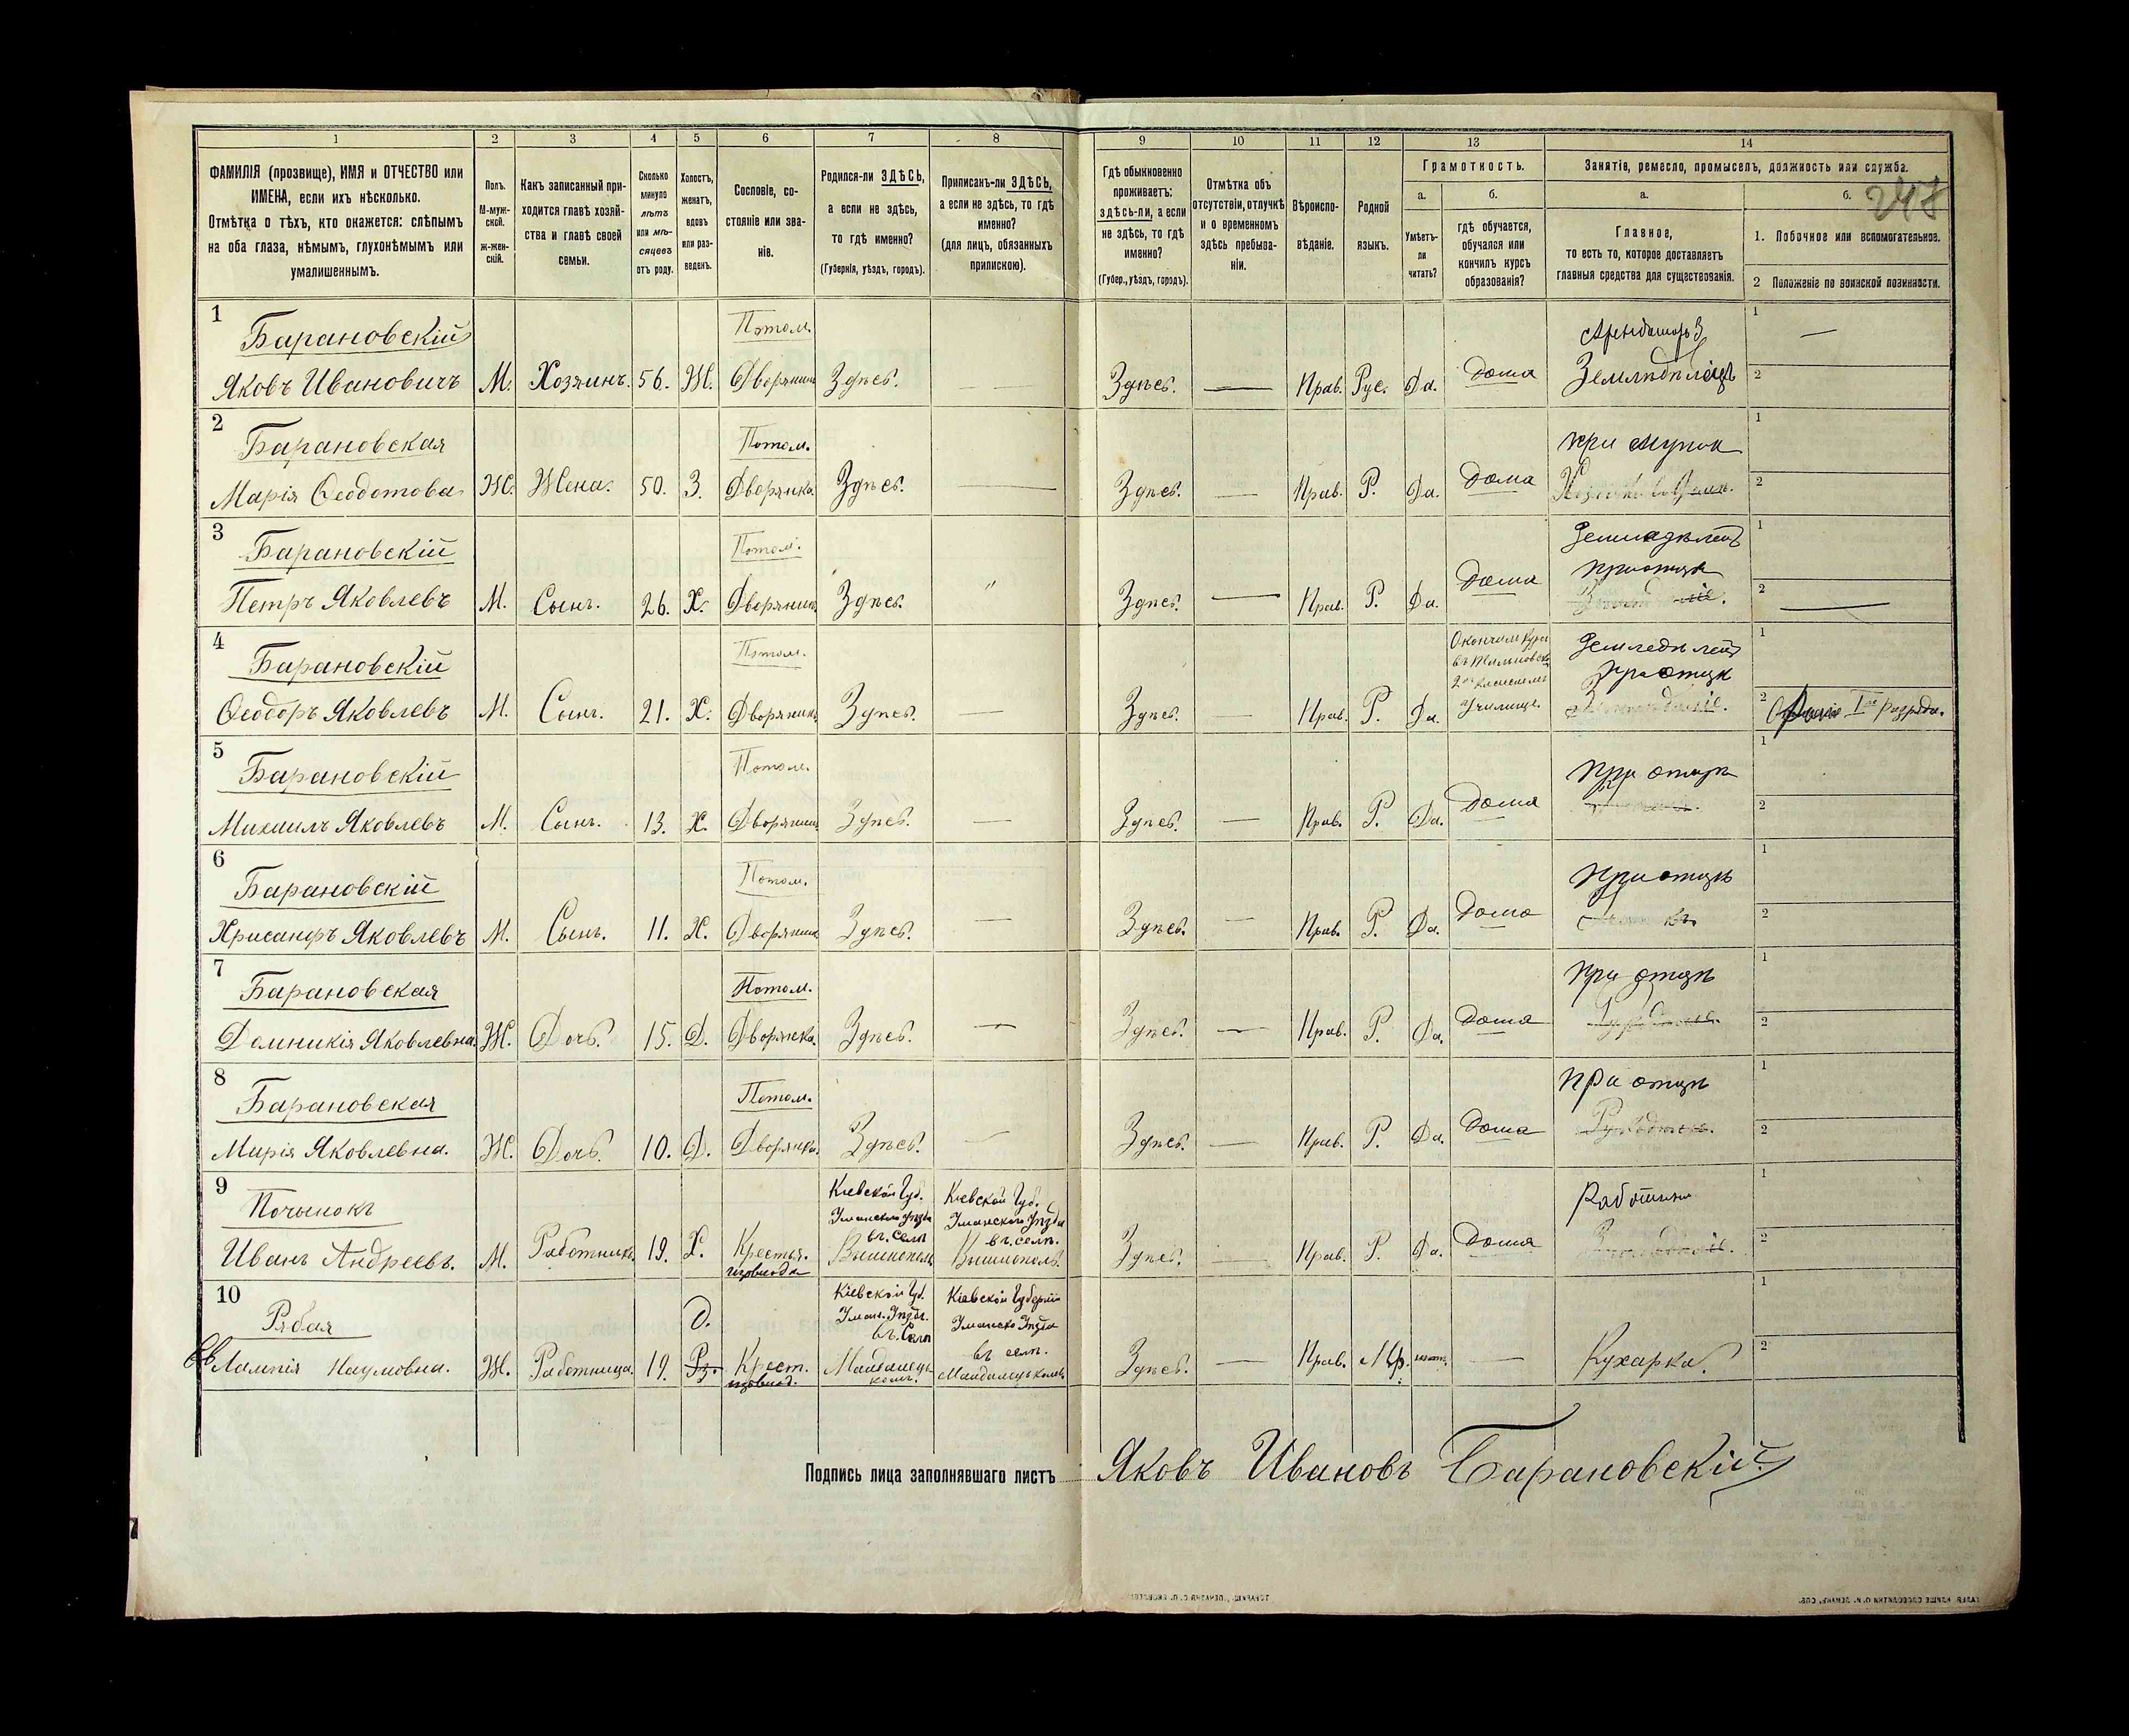 1 2 3 4 5 6 7 8 9 10 11 12 13 14
ФАМИЛІЯ (прозвище), ИМЯ и ОТЧЕСТВО или
ИМЕНА, если ихъ нѣсколько.
Отмѣтка о тѣхъ, кто окажется: слѣпымъ
на оба глаза, нѣмымъ, глухонѣмымъ или
умалишеннымъ.
Полъ.
М-муж-
ской.
ж-жен-
скій.
Какъ записанный при-
ходится главѣ хозяй-
ства и главѣ своей
семьи.
Сколько
минуло
лѣтъ
или мѣ-
сяцевъ
отъ роду.
Холостъ,
женатъ,
вдовъ
или раз-
веденъ.
Сословіе, со-
стояніе или зва-
ніе.
Родился-ли ЗДѢСЬ,
а если не здѣсь,
то гдѣ именно?
(Губернія, уѣздъ, городъ).
Приписанъ-ли ЗДѢСЬ,
а если не здѣсь, то гдѣ
именно?
(для лицъ, обязанныхъ
припискою).
Гдѣ обыкновенно
проживаетъ:
здѣсь-ли, а если
не здѣсь, то гдѣ
именно?
(Губер., уѣздъ, городъ).
Отмѣтка объ
отсутствіи, отлучкѣ
и о временномъ
здѣсь пребыва-
ніи.
Вѣроиспо-
вѣданіе.
Родной
языкъ.
Грамотность.
а.
Умѣетъ-
ли
читать?
б.
гдѣ обучается,
обучался или
кончилъ курсъ
образованія?
Занятіе, ремесло, промыселъ, должность или служба.
а.
Главное,
то есть то, которое доставляетъ
главныя средства для существованія.
б. 248
1. Побочное или вспомогательное.
2 Положеніе по воинской повинности.
1 Барановскій Потом. Арендаторъ 1 —
Яковъ Ивановичъ М. Хозяинъ. 56. Ж. Дворянинъ Здѣсь. — Здѣсь. — Прав. Рус. Да. Дома Земледѣлецъ 2
2 Барановская Потом. при мужѣ 1
Марія Ѳеодотова Ж. Жена. 50. З. Дворянка. Здѣсь. — Здѣсь. — Прав. Р. Да. Дома 2
3 Барановскій Потом. Земледѣлецъ 1
при отцѣ
Петръ Яковлевъ М. Сынъ. 26. Х. Дворянинъ Здѣсь. " Здѣсь. — Прав. Р. Да. Дома 2 —
4 Барановскій Потом. Окончилъ Курсъ Земледѣлецъ 1
въ
2хъ классномъ при отцѣ
Ѳеодоръ Яковлевъ М. Сынъ. 21. Х. Дворянинъ. Здѣсь. — Здѣсь. — Прав. Р. Да. Училище. 2 Iго разряда.
5 Барановскій Потом. при отцѣ 1
Михаилъ Яковлевъ М. Сынъ. 13. Х. Дворянинъ. Здѣсь. — Здѣсь. — Прав. Р. Да. Дома 2
6 Барановскій Потом. при отцѣ 1
Хрисанфъ Яковлевъ М. Сынъ. 11. Х. Дворянинъ Здѣсь. — Здѣсь. — Прав. Р. Да. Дома 2
7 Барановская Потом. при отцѣ 1
Домникія Яковлевна. Ж. Дочь. 15. Д. Дворянка. Здѣсь. — Здѣсь. — Прав. Р. Да. Дома 2
8 Барановская Потом. при отцѣ 1
Марія Яковлевна. Ж. Дочь. 10. Д. Дворянка. Здѣсь. — Здѣсь. — Прав. Р. Да. Дома 2
9 Почынокъ Кіевской Губ. Кіевской Губ. Работникъ 1
Уманского Уѣзда Уманского Уѣзда
въ. селѣ въ. селѣ.
Иванъ Андреевъ. М. Работникъ. 19. Х. Крестья. Вышнополь. Вышнополь. Здѣсь. — Прав. Р. Да. Дома 2
10 Рябая Д. Кіевской Губ. Кіевской Губерніи 1
Уман. Уѣзд. Уманско Уѣзда
въ. Селѣ въ селѣ.
Евлампія Наумовна. Ж. Работница. 19. Крест. Здѣсь. — Прав. — Кухарка. 2
Подпись лица заполнявшаго листъ Яковъ Ивановъ Барановскій.